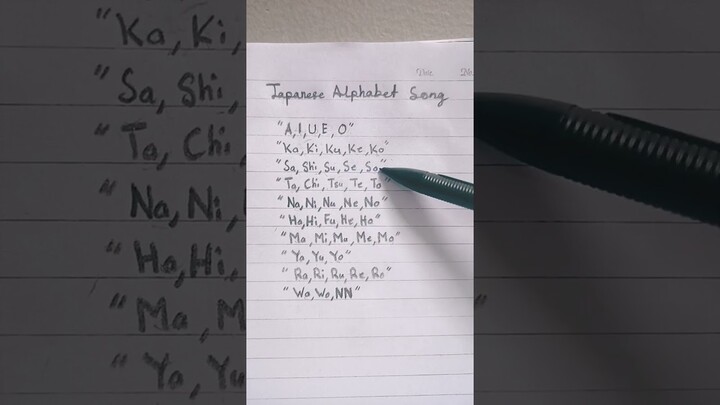 Japanese Alphabet Song
"A, I, U, E, O"
"Ka, Ki, Ku, Ke, Ko"
"Sa, Shi, Su, Se, So"
"Ta, Chi, Tsu, Te, To"
"Na, Ni, Nu, Ne, No"
"Ha, Hi, Fu, He, Ho"
"Ma, Mi, Mu, Me, Mo"
"Ya, Yu, Yo"
"Ra, Ri, Ru, Re, Ro"
"Wa, Wo, NN"